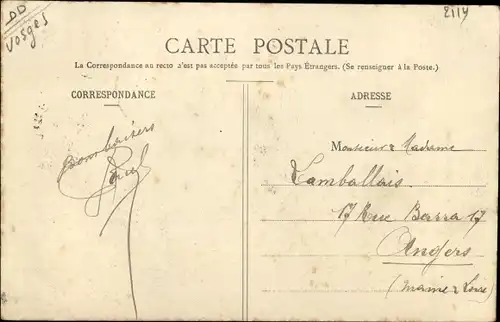 DD
Vosges
2114
CARTE POSTALE
La Correspondance au recto n'est pas acceptée par tous les Pays Étrangers. (Se renseigner à la Poste.)
CORRESPONDANCE
ADRESSE
Bons baisers
Monsieur & Madame
Lamballais
17 Rue Barra 17
Angers
(Maine & Loire)